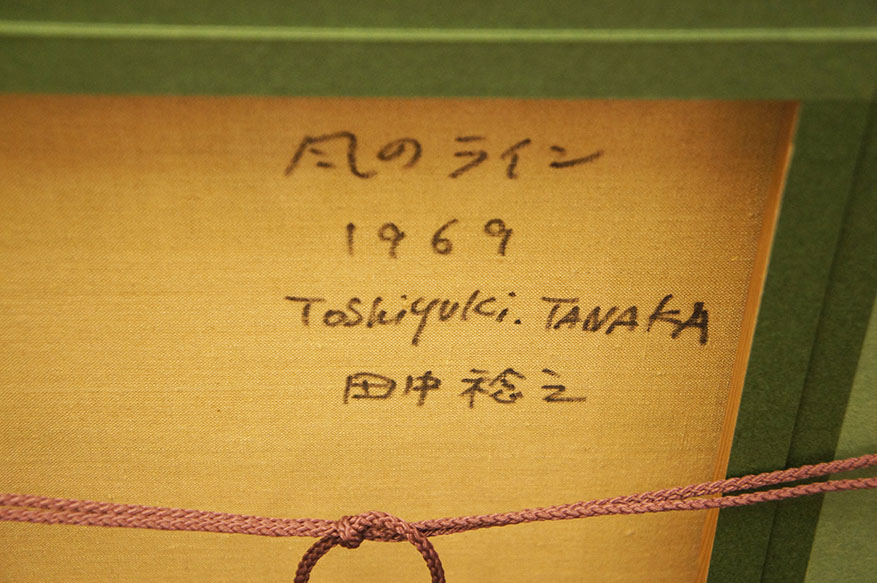 風のライン
1969
Toshiyuki. TANAKA
田中稔之